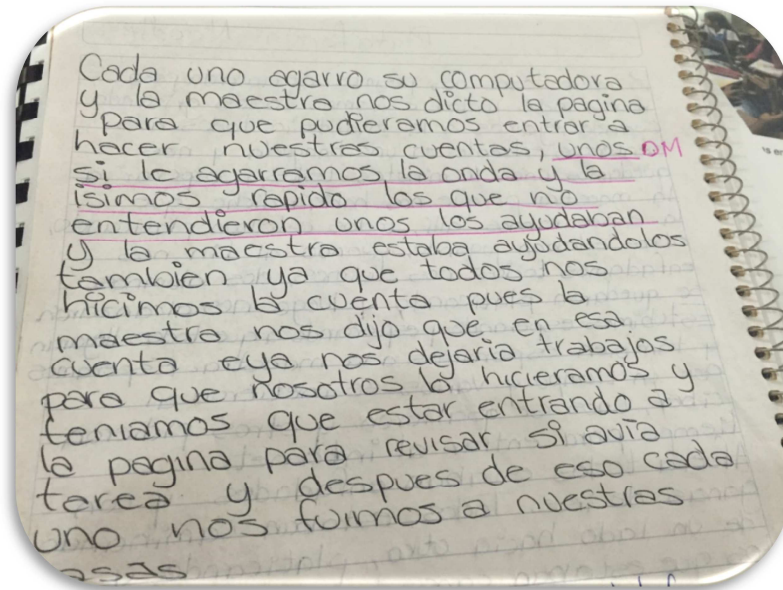 Cada uno agarro su computadora
y la maestra nos dicto la pagina
para que pudieramos entrar a
hacer nuestras cuentas, unos DM
si le agarramos la onda y la
isimos rapido los que no
entendieron unos los ayudaban
y la maestra estaba ayudandolos
tambien ya que todos nos
hicimos la cuenta pues la
maestra nos dijo que en esa
cuenta eya nos dejaria trabajos
para que nosotros lo hicieramos y
teniamos que estar entrando a
la pagina para revisar si avia
tarea y despues de eso cada
uno nos fuimos a nuestras
asas